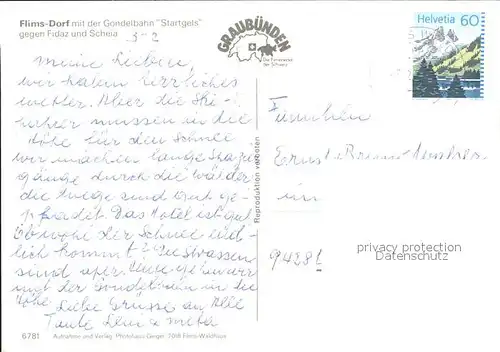 Flims-Dorf mit der Gondelbahn "Startgels"
gegen Fidaz und Scheia
3-2
GRAUBÜNDEN
Die Ferienecke
der Schweiz
Helvetia 60
meine Lieben,
wir haben herrliches
wetter. Aber die Ski-
fahrer müssen in die
Höhe für den Schnee
wir machen lange Spazi
gänge durch die wälder
die wege sind gut ge-
pfadet. Das Hotel ist gut
Obwohl der Schnee
kommt? Die Strassen
sind aper. Heute gehen wir
mit der Gondelbahn in die
Höhe Liebe Grüsse an Alle
Tante
Reproduktion verboten
Familien
Ernst
in
9428!
privacy protection
Datenschutz
6781 Aufnahme und Verlag: Photohaus Geiger, 7018 Flims-Waldhaus